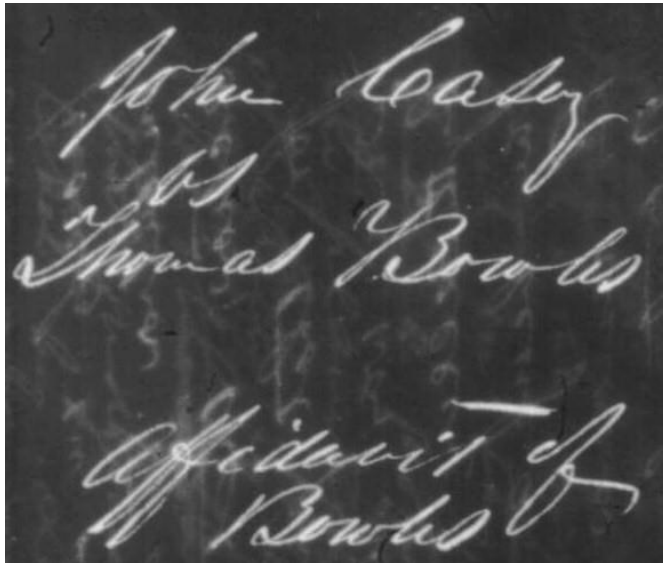 John Casey
vs
Thomas Bowles
Affidavit of
Bowles